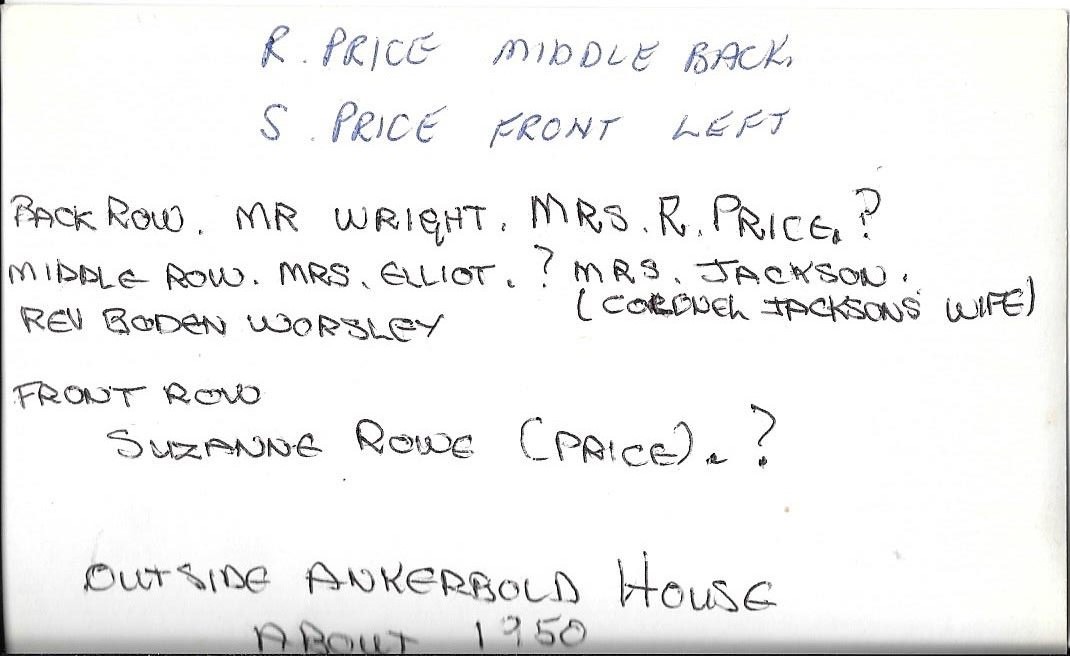 R. PRICE MIDDLE BACK.
S. PRICE FRONT LEFT
BACK ROW. MR WRIGHT. MRS. R. PRICE. ?
MIDDLE ROW. MRS. ELLIOT. ? MRS. JACKSON.
REV BODEN WORSLEY (CORONEL JACKSONS WIFE)
FRONT ROW
SUZANNE ROWE (PRICE). ?
OUTSIDE ANKERBOLD HOUSE
ABOUT 1950